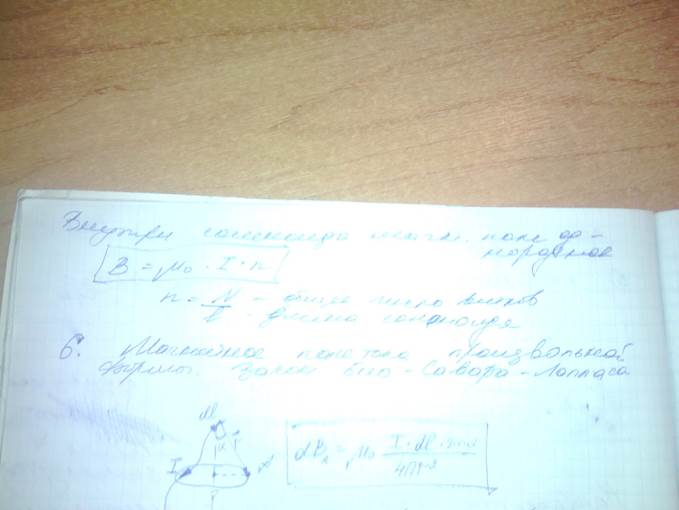 Внутри соленоида магн. поле од-
нородное
B = μ₀ · I · n
n = N/l - общее число витков
- длина соленоида
6. Магнитное поле тока произвольной
формы. Закон Био-Савара-Лапласа
dl
α r
I
dB = μ₀ I · dl · sinα / 4πr²